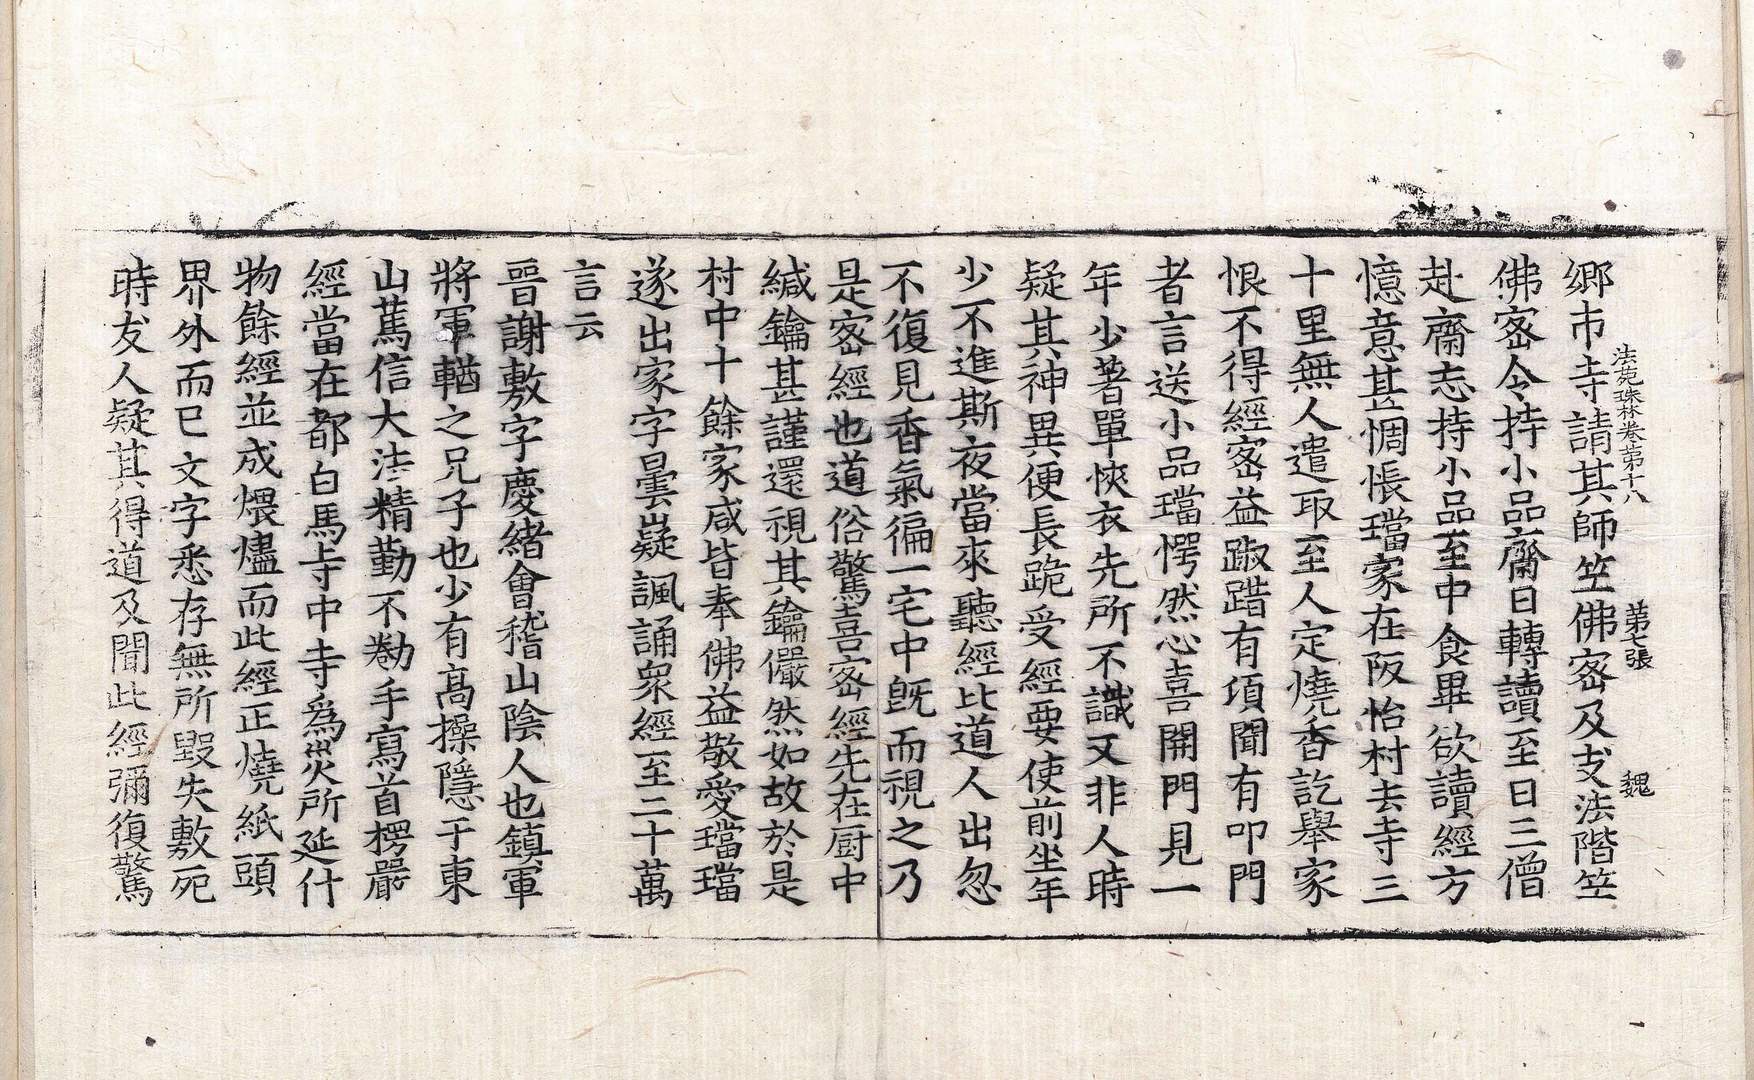 法苑珠林卷第十八　第七張　魏
鄉市寺請其師竺佛密及支法階竺
佛密令持小品齋日轉讀至日三僧
赴齋志持小品至中食畢欲讀經方
憶意甚惆悵璫家在阪怡村去寺三
十里無人遣取至人定燒香訖舉家
恨不得經密益踧踖有頃聞有叩門
者言送小品璫愕然心喜開門見一
年少著單裌衣先所不識又非人時
疑其神異便長跪受經要使前坐年
少不進斯夜當來聽經比道人出忽
不復見香氣徧一宅中旣而視之乃
是密經也道俗驚喜密經先在厨中
緘鑰甚謹還視其鑰儼然如故於是
村中十餘家咸皆奉佛益敬愛璫璫
遂出家字曇嶷諷誦衆經至二十萬
言云
晉謝敷字慶緖會稽山陰人也鎮軍
將軍輶之兄子也少有高操隱于東
山篤信大法精勤不勌手寫首楞嚴
經當在都白馬寺中寺爲災所延什
物餘經並成煨燼而此經正燒紙頭
界外而已文字悉存無所毀失敷死
時友人疑其得道及聞此經彌復驚